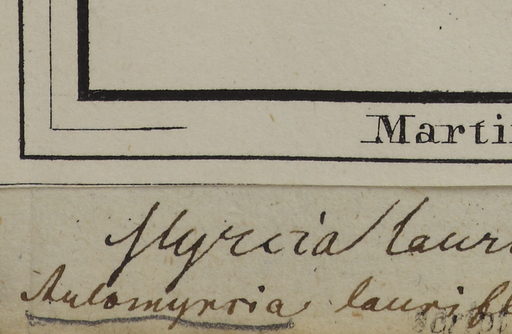 Marti
Myrcia laur
Aulomyrcia laurif